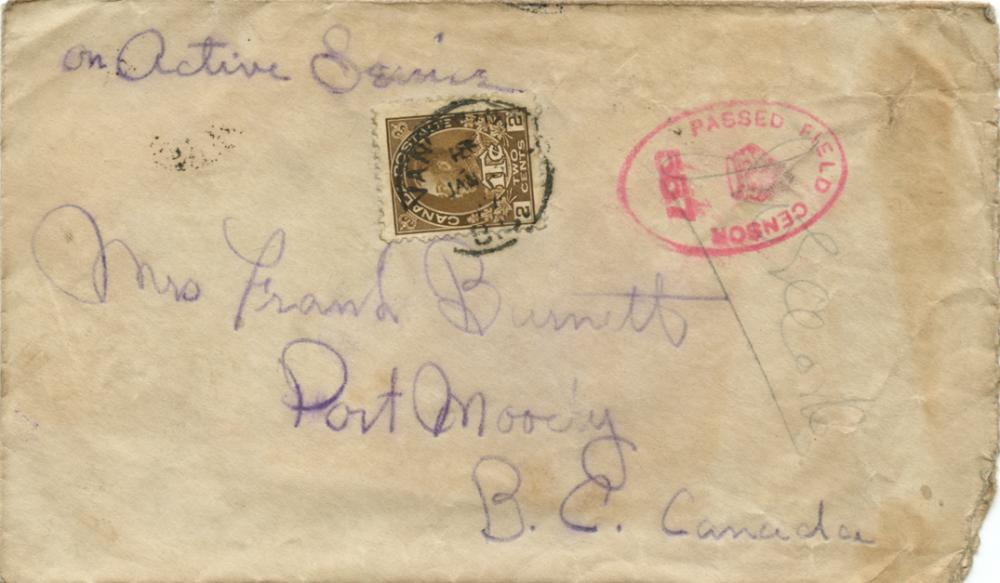 on Active Service
CANADA POSTAGE
1Tc
2 TWO CENTS 2
VAN
JAN
PASSED FIELD
CENSOR
Mrs Frank Burnett
Port Moody
B. C. Canada